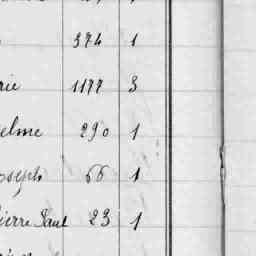 374 1
rie 1177 3
elme 290 1
oseph 66 1
ierre Paul 23 1